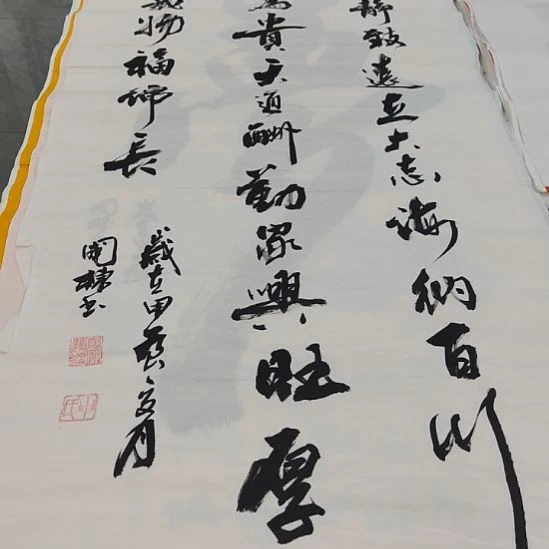 静致遠立大志海納百川
為貴天道酬勤家興旺厚
載物福綿長
歲在甲辰夏月
國棟書